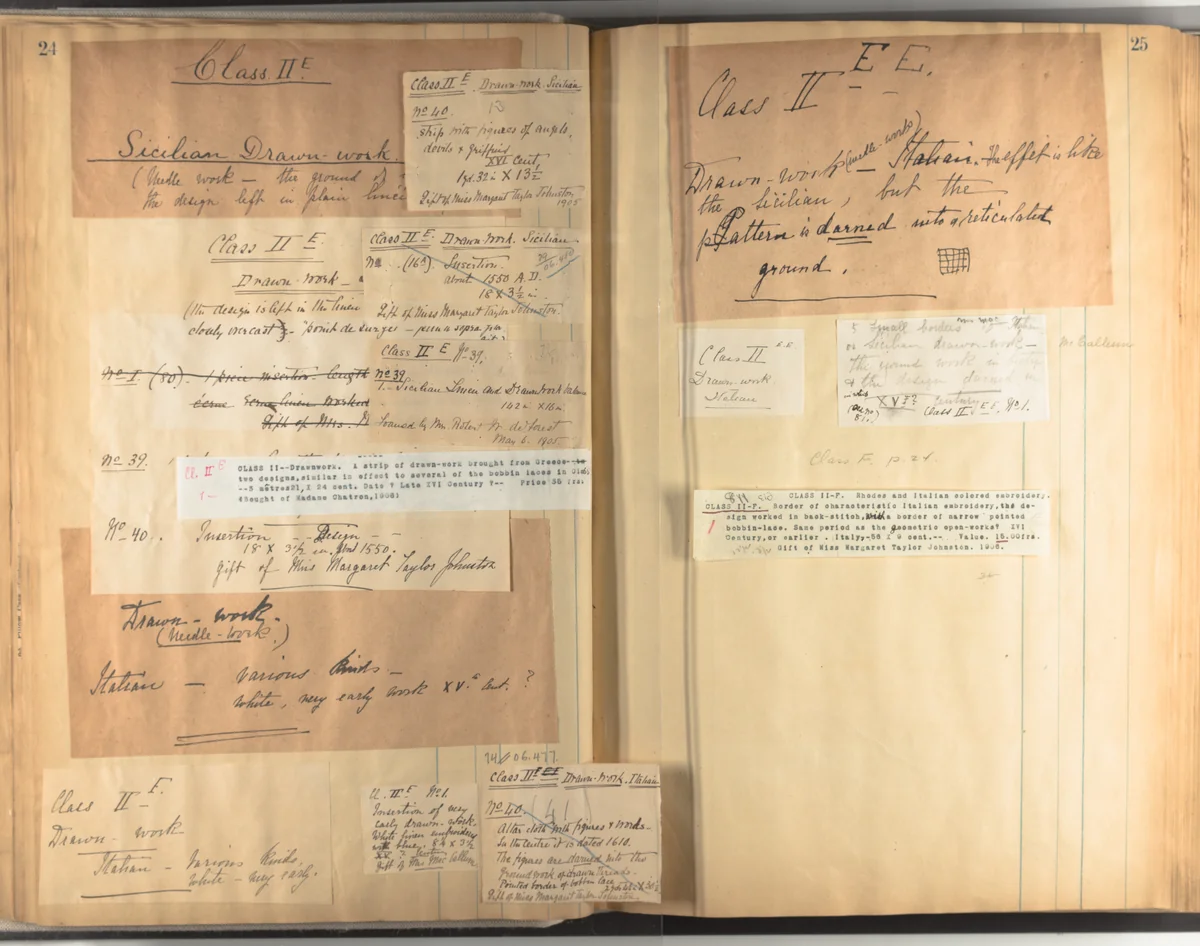 24
Class II E
Sicilian Drawn-work.
(Needle work — the ground of
the design left in plain linen
Class II E. Drawn-work. Sicilian
No 40.
Strip with figures of angels,
devils & griffins
XVI Cent.
1 yd. 32 in X 13 1/2
Gift of Miss Margaret Taylor Johnston
1905
Class II E.
Drawn-work —
(the design is left in the linen
closely overcast
Class II E. Drawn-Work. Sicilian
No. (16A) Insertion.
about 1550 A.D.
18 X 3 1/2 in.
Gift of Miss Margaret Taylor Johnston.
Class II E No 39.
No 39
1. Sicilian Linen and Drawn Work
162 in X 16 in
Loaned by Mrs. Robert W. de Forest
May 6. 1905
No 1 (80). 1 piece insertion length
Gift of Mrs.
No 39.
Cl. II E
1 —
CLASS II--Drawnwork. A strip of drawn-work brought from Greece--
two designes,similar in effect to several of the bobbin laces in
--5 metres21,X 24 cent. Date ? Late XVI Century ?-- Price 55 frs.
(Bought of Madame Chatron,1906)
No 40. Insertion — Design —
18 X 3 1/2 in. About 1550.
Gift of Miss Margaret Taylor Johnston
Drawn-work.
(Needle-work.)
Italian — Various Kinds —
White, very early work XV.th Cent. ?
Class II E.
Drawn-work
Italian — Various Kinds.
White — very early.
Cl. II E No 1.
Insertion of very
early drawn-work.
White linen embroidery
with blue. 8 1/4 X 3 1/2
Gift of Mrs Mac Callum
06.477.
Class II E EE Drawn-Work. Italian
No 40. 41
Altar cloth with figures & words.
In the centre it is dated 1610.
The figures are darned into the
Ground work of drawn threads.
Pointed border of bobbin lace
Gift of Miss Margaret Taylor Johnston.
25
Class II E E.
Drawn-work (needle-work) — Italian. The effect is like
the Sicilian, but the
Pattern is darned into a reticulated
ground.
Class II E.E
Drawn-work.
Italian
5 Small borders of
or Sicilian drawn-work —
the ground work in
& the design darned in
XVI? Century
Class II E E, No 1.
Mc Callum
Class F. p. 24.
CLASS II-F. Shades and Italian colored embroidery.
CLASS II-F. Border of characteristic Italian embroidery, the de-
1
sign worked in back-stitch, with a border of narrow pointed
bobbin-lace. Same period as the geometric open-works? XVI
Century,or earlier . Italy-58 X 9 cent.-- Value. 15.00frs.
Gift of Miss Margaret Taylor Johnston. 1906.